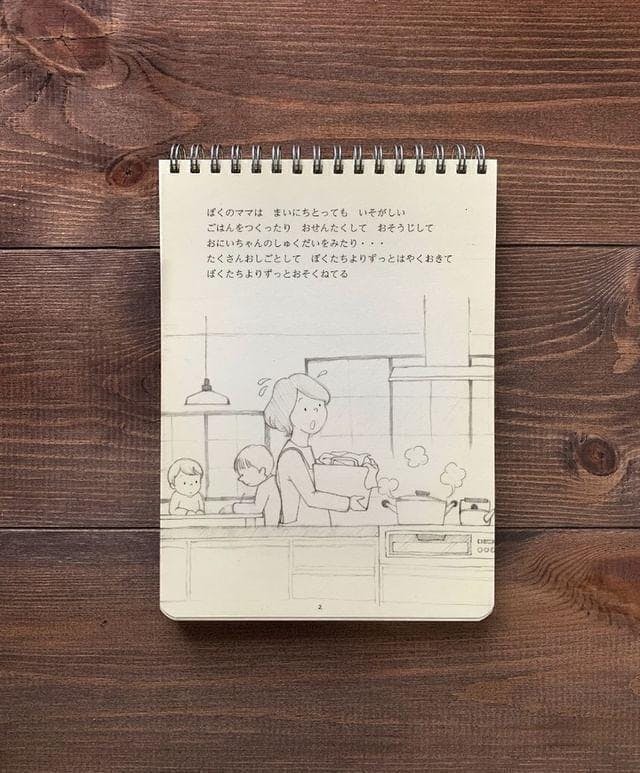 ぼくのママは　まいにちとっても　いそがしい
ごはんをつくったり　おせんたくして　おそうじして
おにいちゃんのしゅくだいをみたり・・・
たくさんおしごとして　ぼくたちよりずっとはやくおきて
ぼくたちよりずっとおそくねてる
2